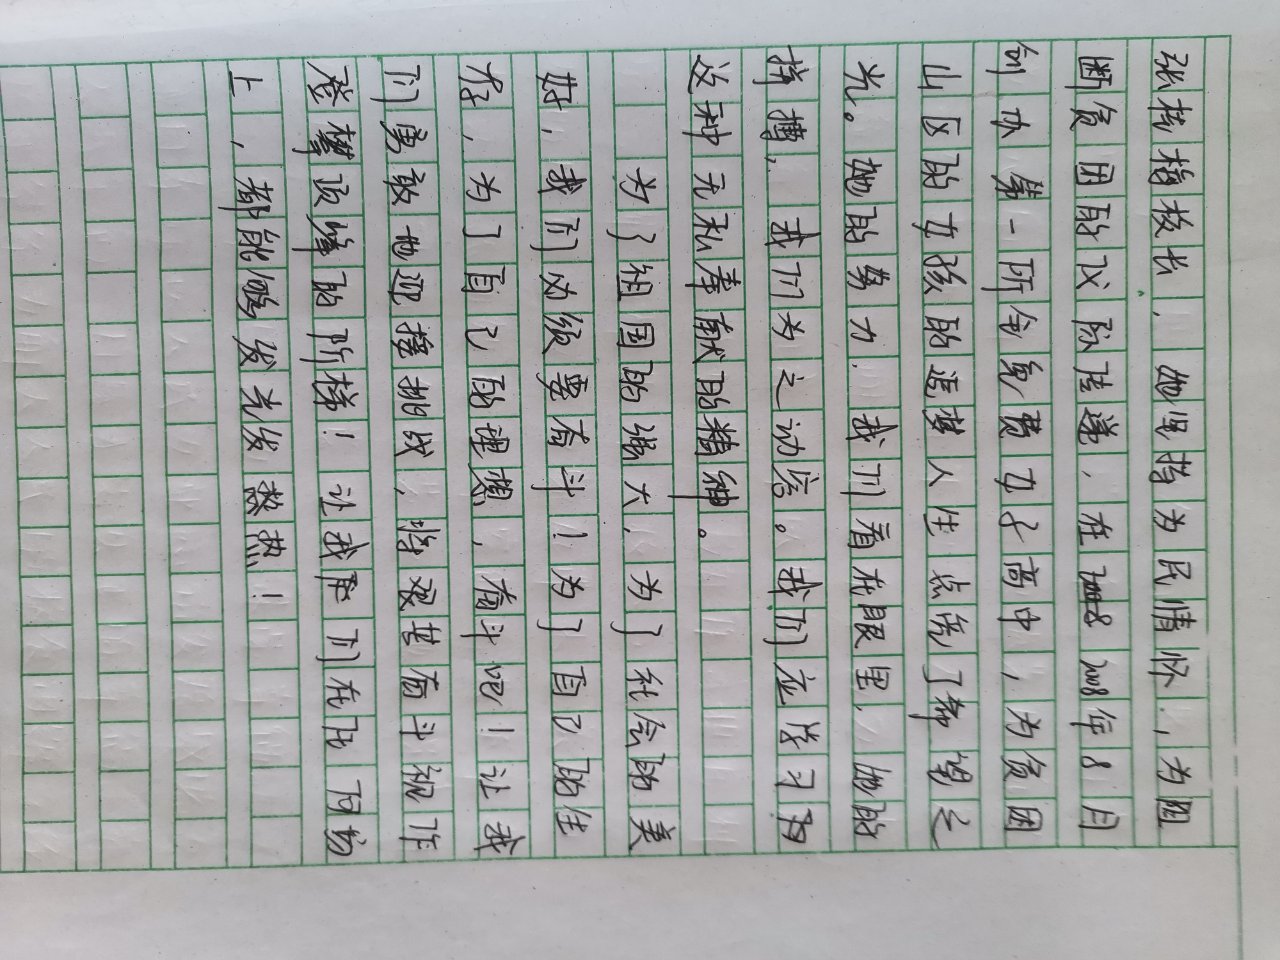 张桂梅校长，她坚持为民情怀，为阻
断贫困的代际传递，在2008年8月
创办第一所全免费女子高中，为贫困
山区的女孩的追梦人生点亮了希望之
光。她的努力，我们看在眼里，她的
拼搏，我们为之动容。我们应学习
这种无私奉献的精神。
为了祖国的强大，为了社会的美
好，我们必须要奋斗！为了自己的生
存，为了自己的理想，奋斗吧！让我
们勇敢地迎接挑战，将艰苦奋斗视作
登攀顶峰的阶梯！让我们在任何
上，都能够发光发热！